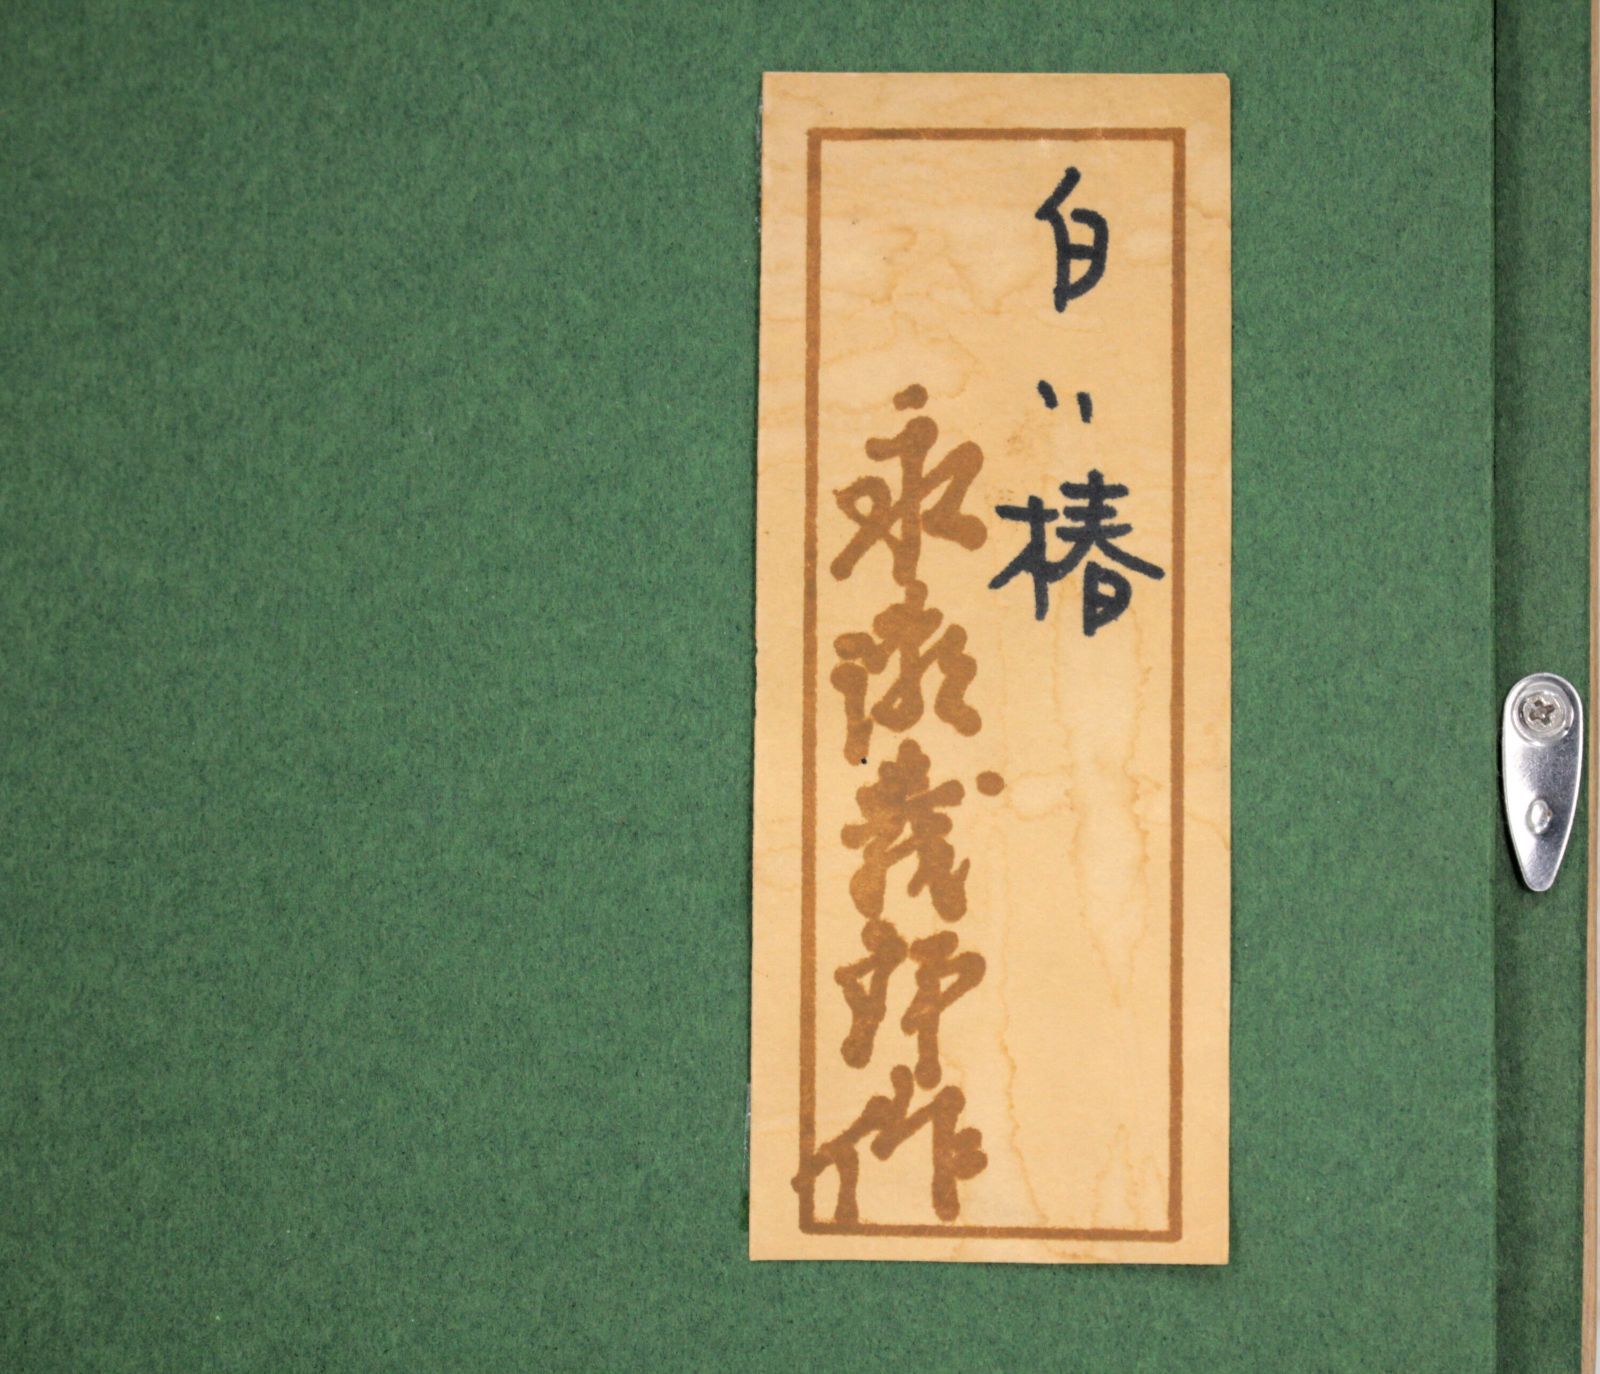 白い椿
永瀬義郎作